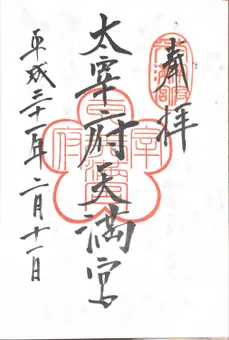 奉拝
太宰府天満宮
平成三十一年二月十一日